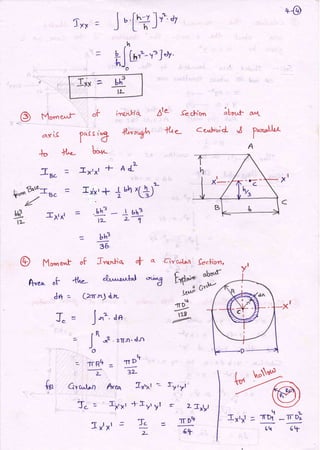 4-④
Ixx = ∫ b·[(h-y)/h] y²·dy
= b/h ∫₀ʰ [hy²-y³] dy.
Ixx = bh³/12
③ Moment of inertia Δ'le Section about an
axis passing through the Centroid & parallel
to the base.
I_BC = Ix'x' + Ad²
from Base I_BC = Ix'x' + 1/2 bh × (h/3)²
bh³/12
Ix'x' = bh³/12 - 1/2 bh³/9
= bh³/36
A
h
x' C x'
h/3
B b C
④ Moment of Inertia of a Circular Section.
Area of the elemental ring
Explain about
dA = (2πr) dr
πD⁴/128
Jc = ∫ r². dA
= ∫₀ᴿ r². 2πr. dr
= πR⁴/2 = πD⁴/32
y'
R dr
C x'
D
for Circular Area Ix'x' = Iy'y'
Jc = Ix'x' + Iy'y' = 2 Ix'x'
Ix'x' = Jc/2 = πD⁴/64
for hollow
Ix'x' = πD₁⁴/64 - πD₂⁴/64